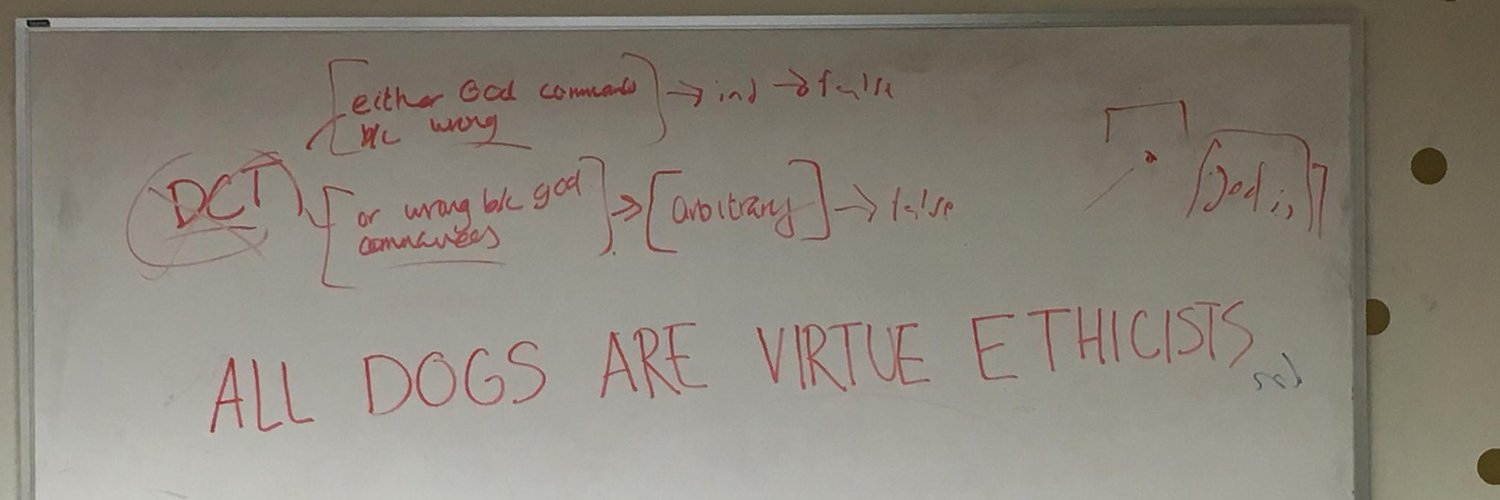 [either God commands] → ind → false
b/c wrong
DCT
[or wrong b/c god] → [arbitrary] → false
commandees
[god is]
ALL DOGS ARE VIRTUE ETHICISTS